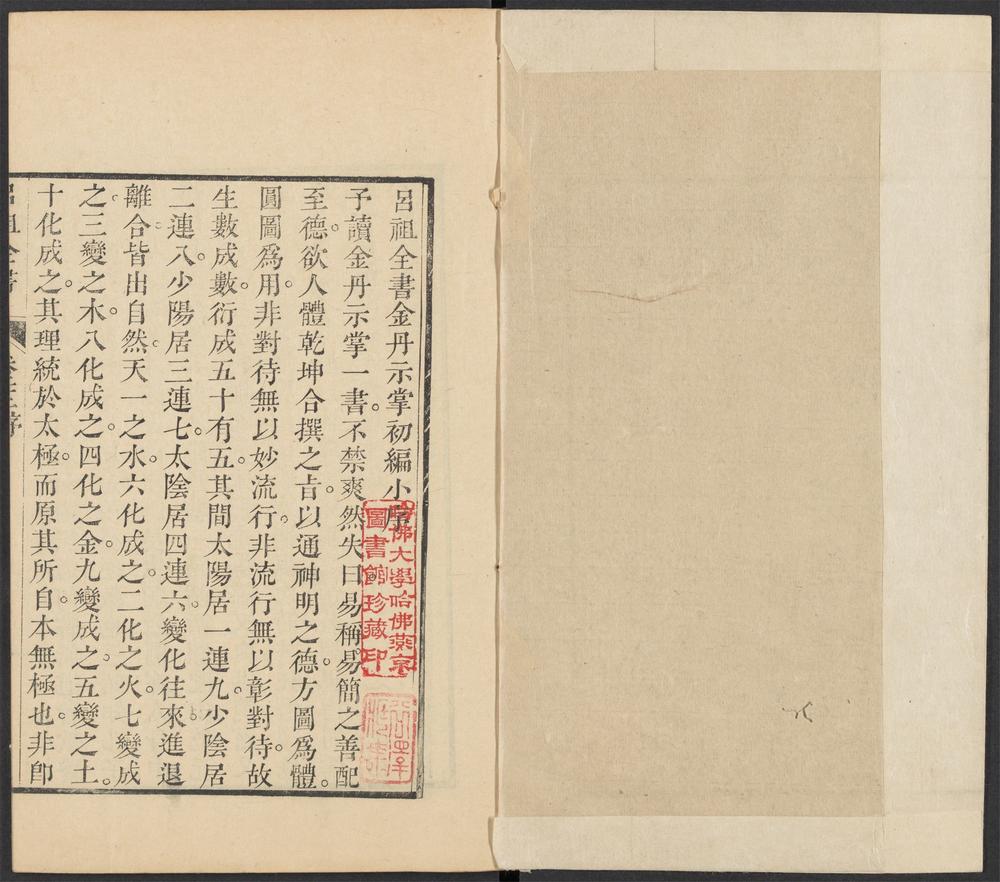 呂祖全書金丹示掌初編小序
予讀金丹示掌一書。不禁爽然失曰易稱易簡之善配
至德。欲人體乾坤合撰之旨。以通神明之德。方圖爲體。
圓圖爲用。非對待無以妙流行。非流行無以彰對待。故
生數成數。衍成五十有五。其間太陽居一連九。少陰居
二連八。少陽居三連七。太陰居四連六。變化往來。進退
離合。皆出自然。天一之水。六化成之。二化之火。七變成
之。三變之木。八化成之。四化之金。九變成之。五變之土。
十化成之。其理統於太極。而原其所自。本無極也。非卽
呂祖全書
卷三序
哈佛大學哈佛燕京
圖書館珍藏印